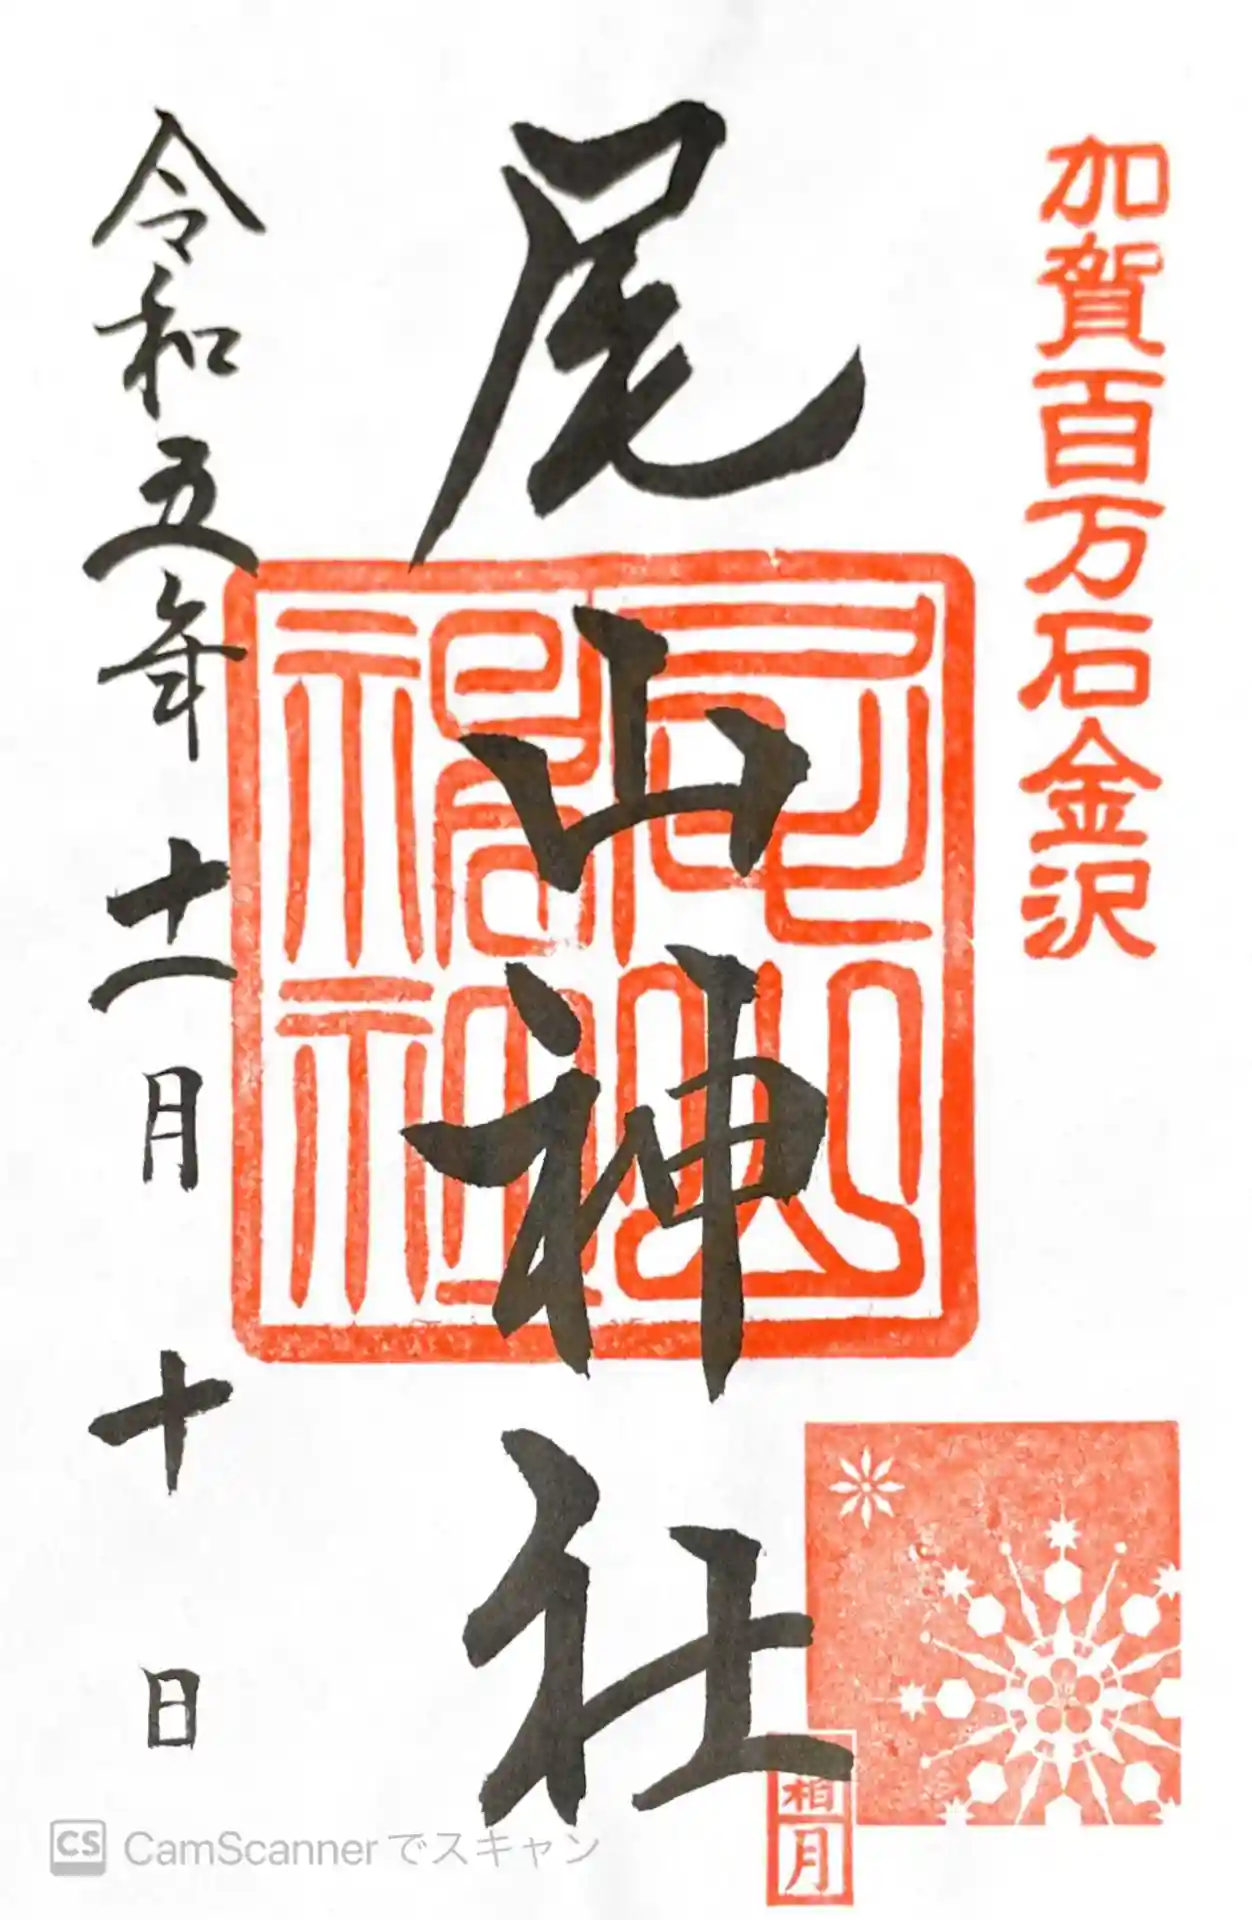 加賀百万石金沢
尾山神社
尾山神社
令和五年十一月十日
霜月
CS CamScannerでスキャン